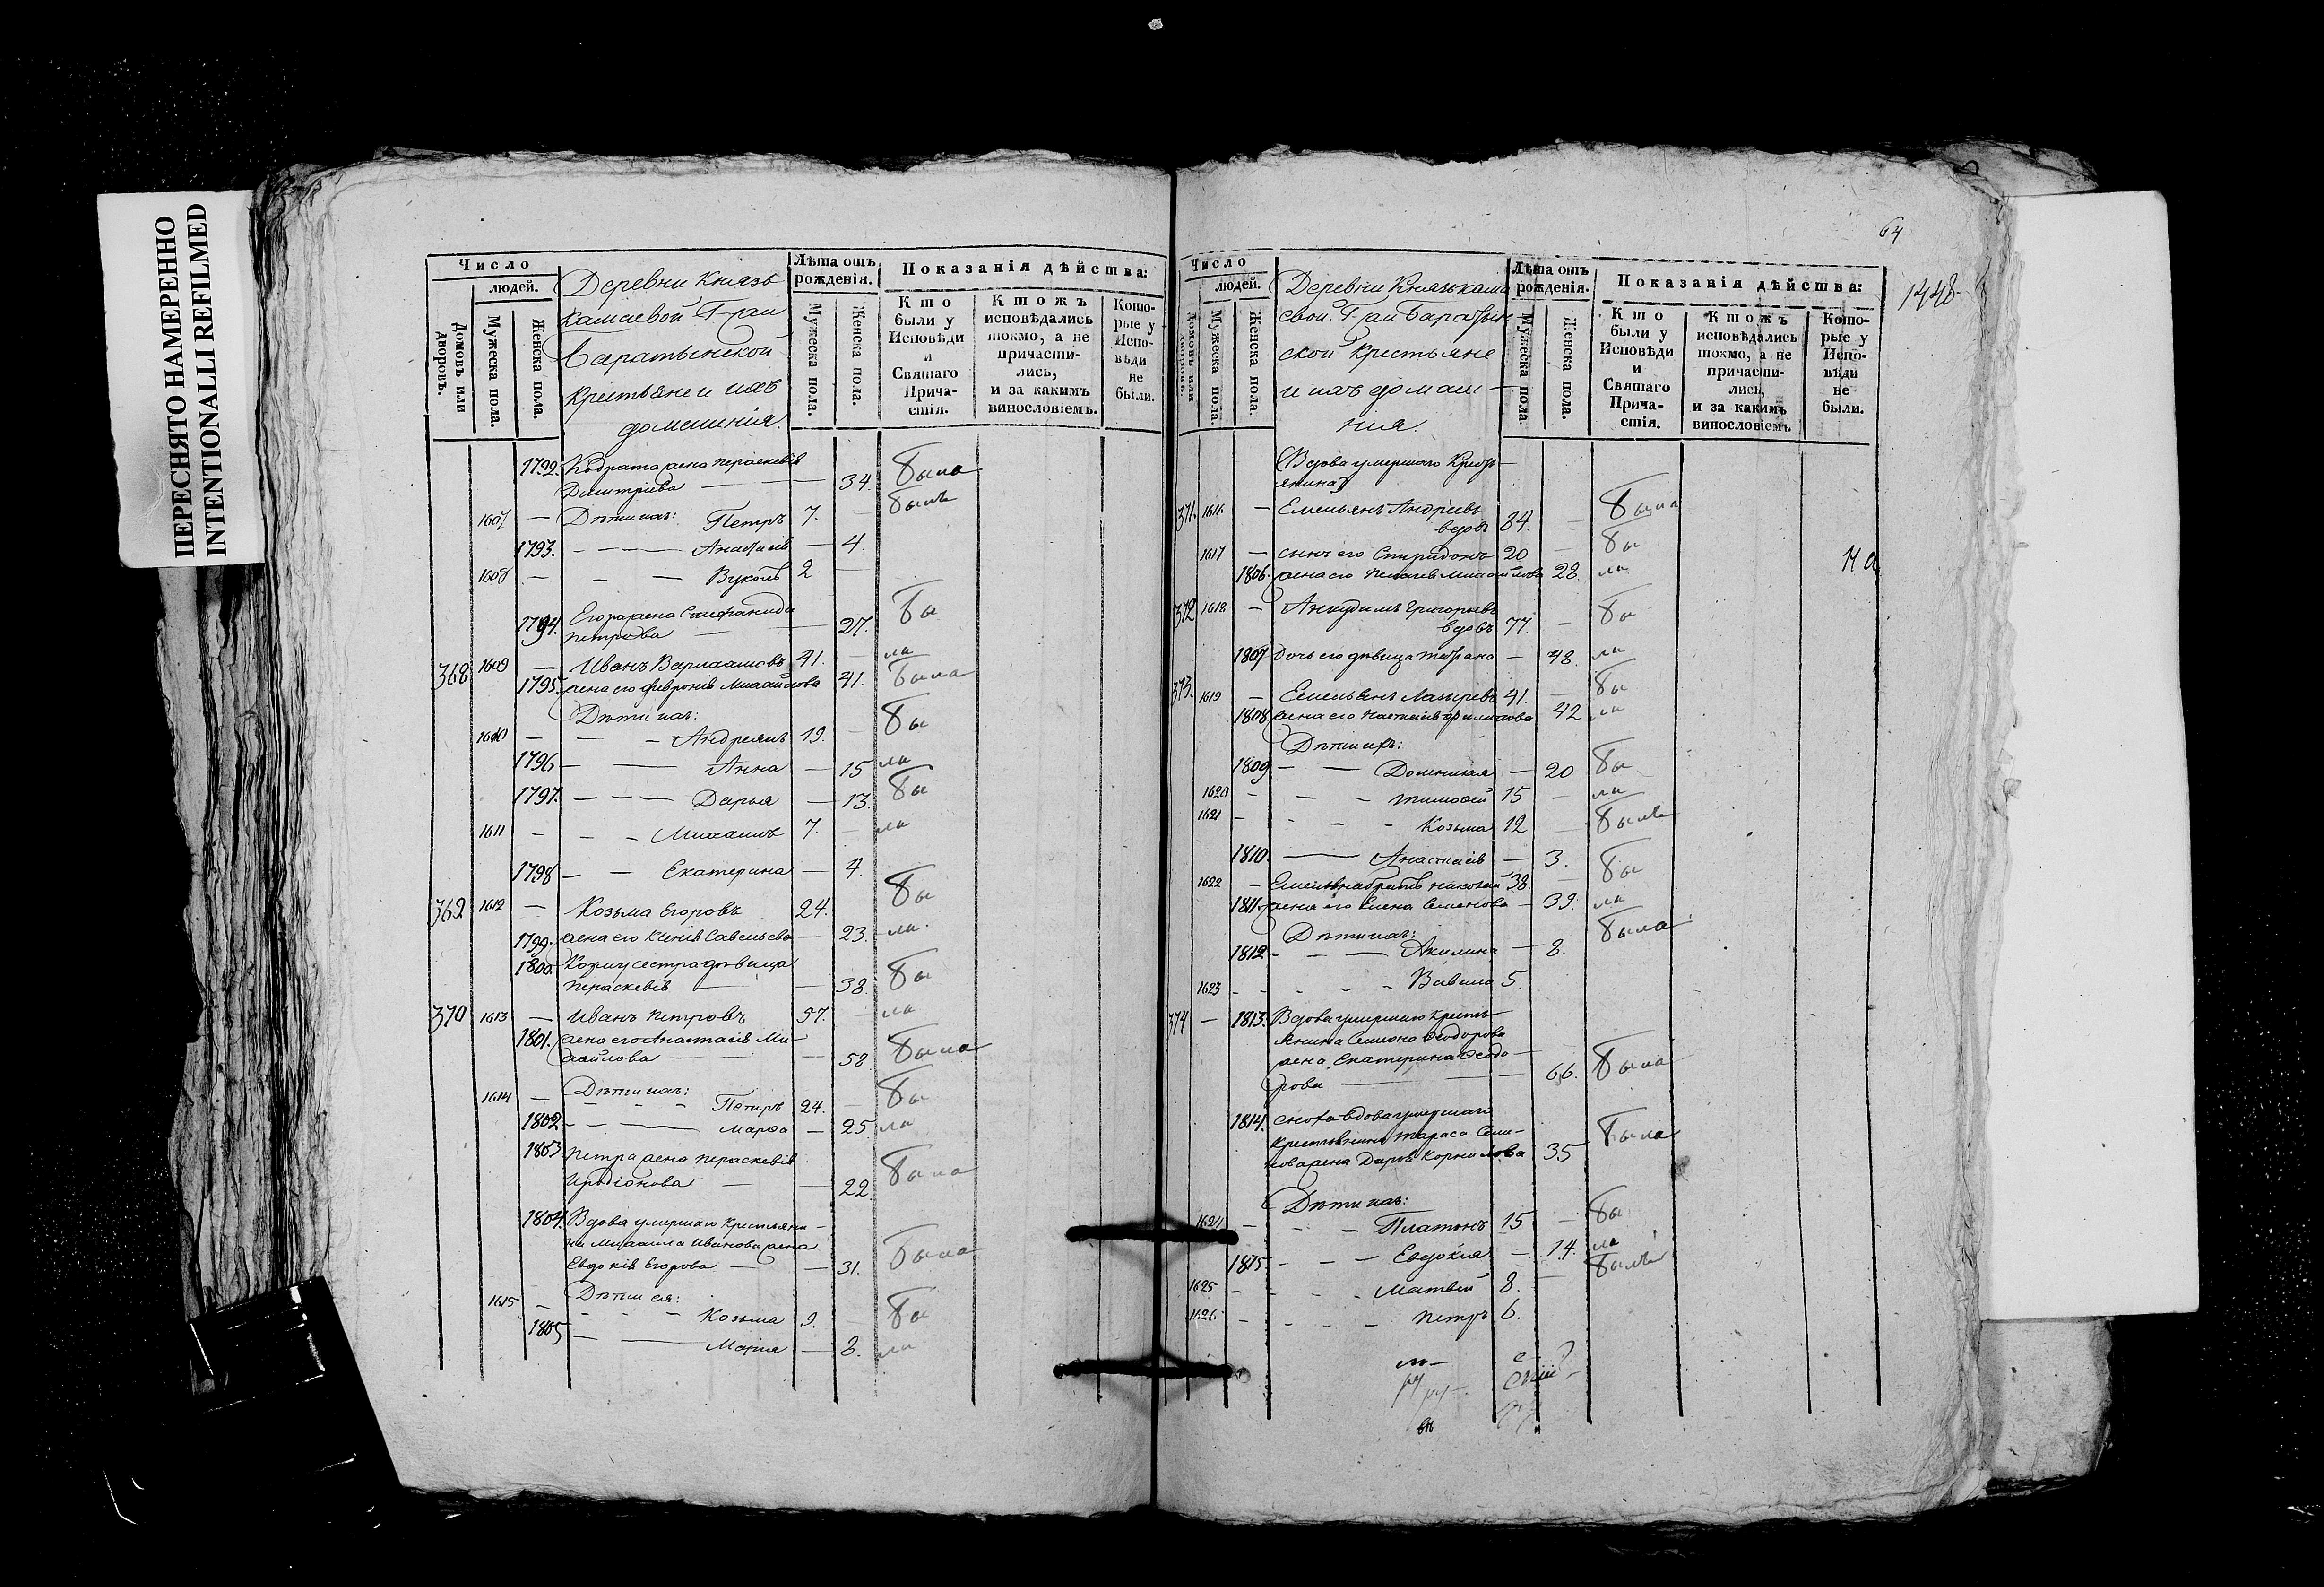 ПЕРЕСНЯТО НАМЕРЕННО
INTENTIONALLI REFILMED
Число
людей.
Домовъ или дворовъ.
Мужеска пола.
Женска пола.
Деревни Князь
Камаевой Г-жи
Баратынской
крестьяне и ихъ
домашнія.
Лѣта отъ рожденія.
Мужеска пола.
Женска пола.
Показанія дѣйства:
Кто были у Исповѣди и Святаго Причастія.
Ктожъ исповѣдались токмо, а не причастились, и за какимъ винословіемъ.
Которые у Исповѣди не были.
1792. Кодрата жена Параскевія
Димитріева — — 34. Была
1607 — Дѣти ихъ: Петръ 7. — былъ
1793. — — — Анастасія — 4.
1608 — — — Вуколъ 2 —
1794. Егора жена Стефанида
Петрова — — 27. Бы
368 1609 — Иванъ Варлаамовъ 41. — ла
1795. жена его Февронія Михайлова 41. Была
Дѣти ихъ:
1610 — — — Андреянъ 19. — Бы
1796 — — Анна — 15 ла
1797. — — — Дарья — 13. Бы
1611 — — — Михаилъ 7. — ла
1798 — — Екатерина — 4.
369 1612 — Козьма Егоровъ 24. Бы
1799. жена его Ксенія Савельева — 23. ла
1800. Козмы сестра дѣвица
Параскевія — — 38. Бы
370 1613 — Иванъ Петровъ 57. — ла
1801. жена его Анастасія Ми-
хайлова — — 58. Была
Дѣти ихъ:
1614 — — — — Петръ 24. — Бы
1802 — — — Марѳа — 25. ла
1803. Петра жена Параскевія
Иродіонова — — 22. Была
1804. Вдова умершаго крестьяни-
на Михаила Иванова жена
Евдокія Егорова — — 31. Была
Дѣти ея:
1615 — — — — Козьма 9. — Бы
1805 — — Марія — 3. ла
64
1448
Число
людей.
Домовъ или дворовъ.
Мужеска пола.
Женска пола.
Деревни Князькама
евой. Г-жи Баратын
ской крестьяне
и ихъ домаш-
нія.
Лѣта отъ рожденія.
Мужеска пола
Женска пола.
Показанія дѣйства:
Кто были у Исповѣди и Святаго Причастія.
Ктожъ исповѣдались токмо, а не причастились, и за какимъ винословіемъ
Которые у Исповѣди не были.
(Вдова умершаго Кресть-
янина)
371. 1616 — Емельянъ Андреевъ
вдовъ 84. — Была
1617 — сынъ его Спиридонъ 20 — Бы
1806. жена его Михайлова 28. ла
На
372 1618 — Анкудимъ Григорьевъ
вдовъ 77. — Бы
1807 дочь его дѣвица Татіана — 48. ла
373. 1619 — Емельянъ Лазаревъ 41. — Бы
1808 жена его Настасія Филипова 42 ла
Дѣти ихъ:
1809 — — Домникія — 20 Бы
1620 — — — Тимоѳей 15 — ла
1621 — — — — Козьма 12 — Былъ
1810. — Анастасія — 3.
1622 — Емельяна братъ Николай 38. — Бы
1811. жена его Елена Семенова — 39. ла
Дѣти ихъ:
1812 — — — Акилина — 8. Была
1623 — — — — Вавила 5.
374 — 1813. Вдова умершаго кресть-
янина Семена Ѳеодорова
жена Екатерина Ѳеодо-
рова — — 66. Была
1814. сноха вдова умершаго
Крестьянина Тараса Семе-
нова жена Дарія Корнилова 35 Была
Дѣти ихъ:
1624 — — — Платонъ 15 — Бы
1815 — — — Евдокія — 14. ла
1625 — — — Матвѣй 8. — былъ
1626 — — — — Петръ 6.